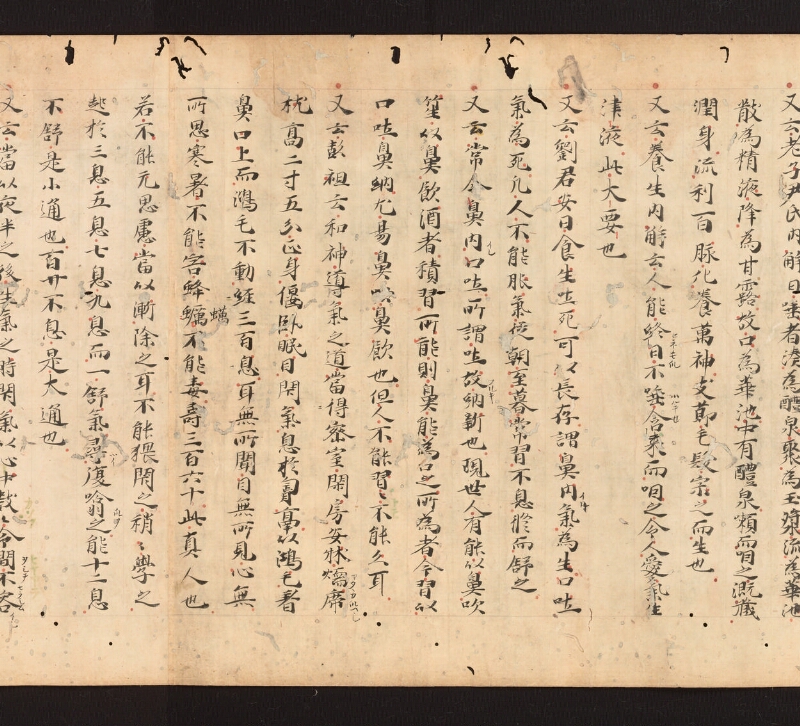 又云老子尹氏内解曰唾者湊為醴泉聚為玉漿流為華池
散為精液降為甘露故口為華池中有醴泉嗽而咽之溉藏
潤身流利百脉化養萬神支節毛髮宗之而生也
又云養生内解云人能終日不唾含棗而咽之令人愛氣生
津液此大要也
又云劉君安曰食生吐死可以長存謂鼻内氣為生口吐
氣為死凡人不能服氣從朝至暮常習不息徐而舒之
又云常令鼻内口吐所謂吐故納新也現世人有能以鼻吹
笙以鼻飲酒者積習所能則鼻能為口之所為者今習以
口吐鼻納尤易鼻吹鼻飲也但人不能習々不能久耳
又云彭祖云和神導氣之道當得密室閑房安牀煖席
枕高二寸五分正身偃臥瞑目閇氣息於胷鬲以鴻毛著
鼻口上而鴻毛不動經三百息耳無所聞目無所見心無
所思寒暑不能害蜂蠆不能毒壽三百六十此真人也
若不能元思慮當以漸除之耳不能猥閇之稍々學之
起於三息五息七息九息而一舒氣尋復噏之能十二息
不舒是小通也百廿不息是大通也
又云當以夜半之後生氣之時閇氣以心中數々令間不容